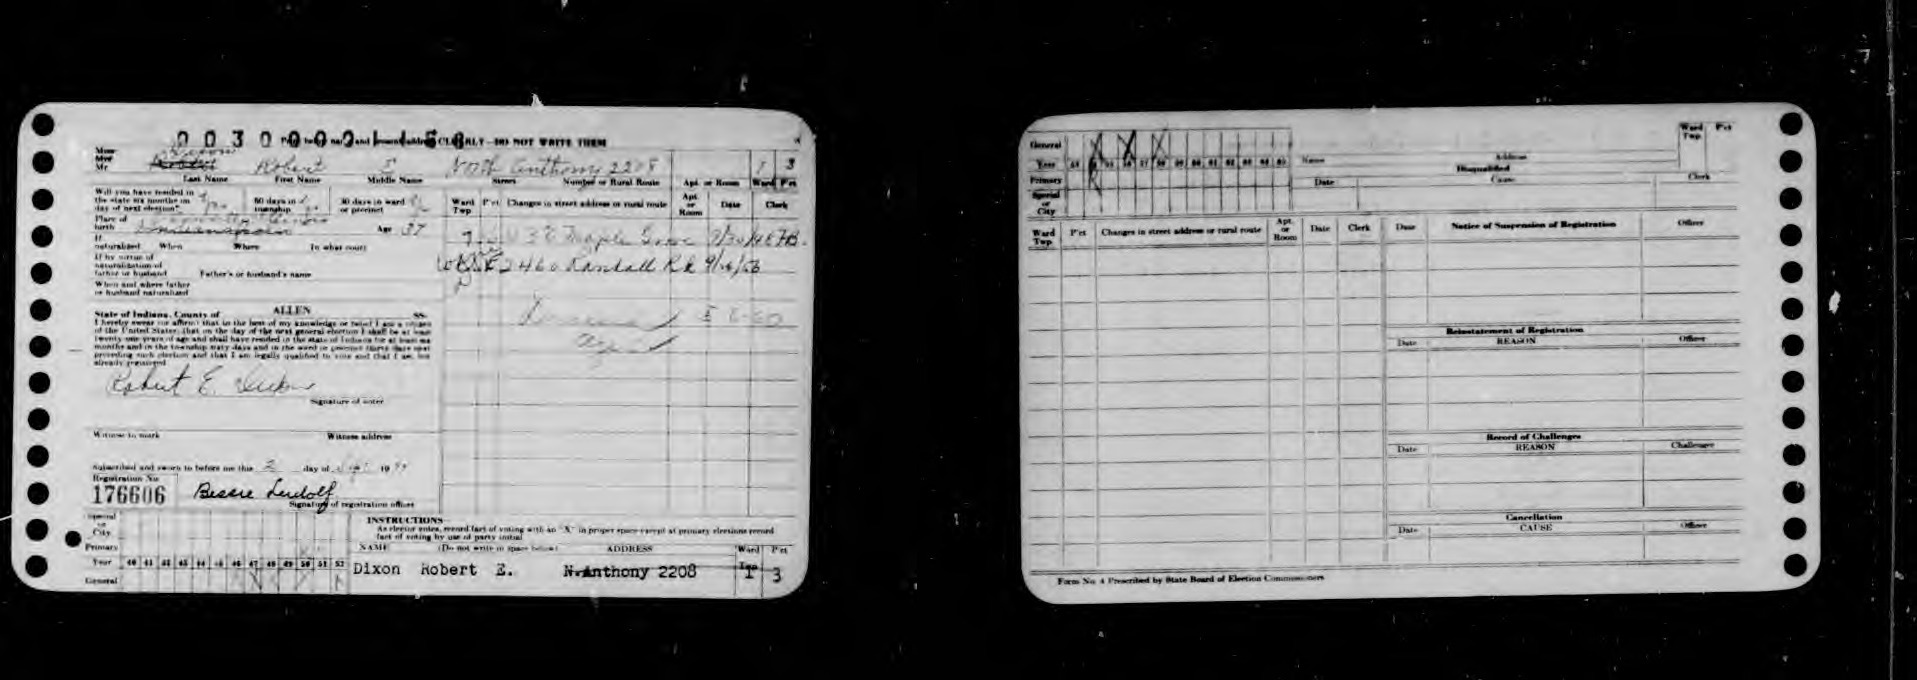 CLEARLY—DO NOT WRITE THEM
Miss
Mrs
Mr
Dixon
Robert E North Anthony 2208 1 3
Last Name First Name Middle Name Street Number or Rural Route Apt. or Room Ward P'ct
Will you have resided in
the state six months on
day of next election? yes
60 days in
township
30 days in ward
or precinct
Place of
birth Indianapolis Age 37
If
naturalized When Where In what court
If by virtue of
naturalization of
father or husband Father's or husband's name
When and where father
or husband naturalized
State of Indiana, County of ALLEN SS
I hereby swear (or affirm) that to the best of my knowledge or belief I am a citizen
of the United States; that on the day of the next general election I shall be at least
twenty-one years of age and shall have resided in the state of Indiana for at least six
months and in the township sixty days and in the ward or precinct thirty days next
preceding such election and that I am legally qualified to vote and that I am not
already registered
Robert E. Dixon
Signature of voter
Witness to mark Witness address
Subscribed and sworn to before me this 2 day of Sept 19
Registration No
176606 Bessie
Signature of registration officer
Ward
Twp P'ct Changes in street address or rural route Apt.
or
Room Date Clerk
Maple Grove
2460 Randall Rd
INSTRUCTIONS
As elector votes, record fact of voting with an "X" in proper space except at primary elections record
fact of voting by use of party initial
Special
or
City
Primary
Year 40 41 42 43 44 45 46 47 48 49 50 51 52
General
NAME (Do not write in space below) ADDRESS Ward
Twp P'ct
Dixon Robert E. N. Anthony 2208 1 3
General
Year 56 57 58 59 60 61 62 63 64 65
Primary
Special
or
City
Name Address
Ward
Twp P'ct
Disqualified
Date Cause Clerk
Ward
Twp P'ct Changes in street address or rural route Apt.
or
Room Date Clerk
Date Notice of Suspension of Registration Officer
Reinstatement of Registration
Date REASON Officer
Record of Challenges
Date REASON Challenger
Cancellation
Date CAUSE Officer
Form No. 4 Prescribed by State Board of Election Commissioners